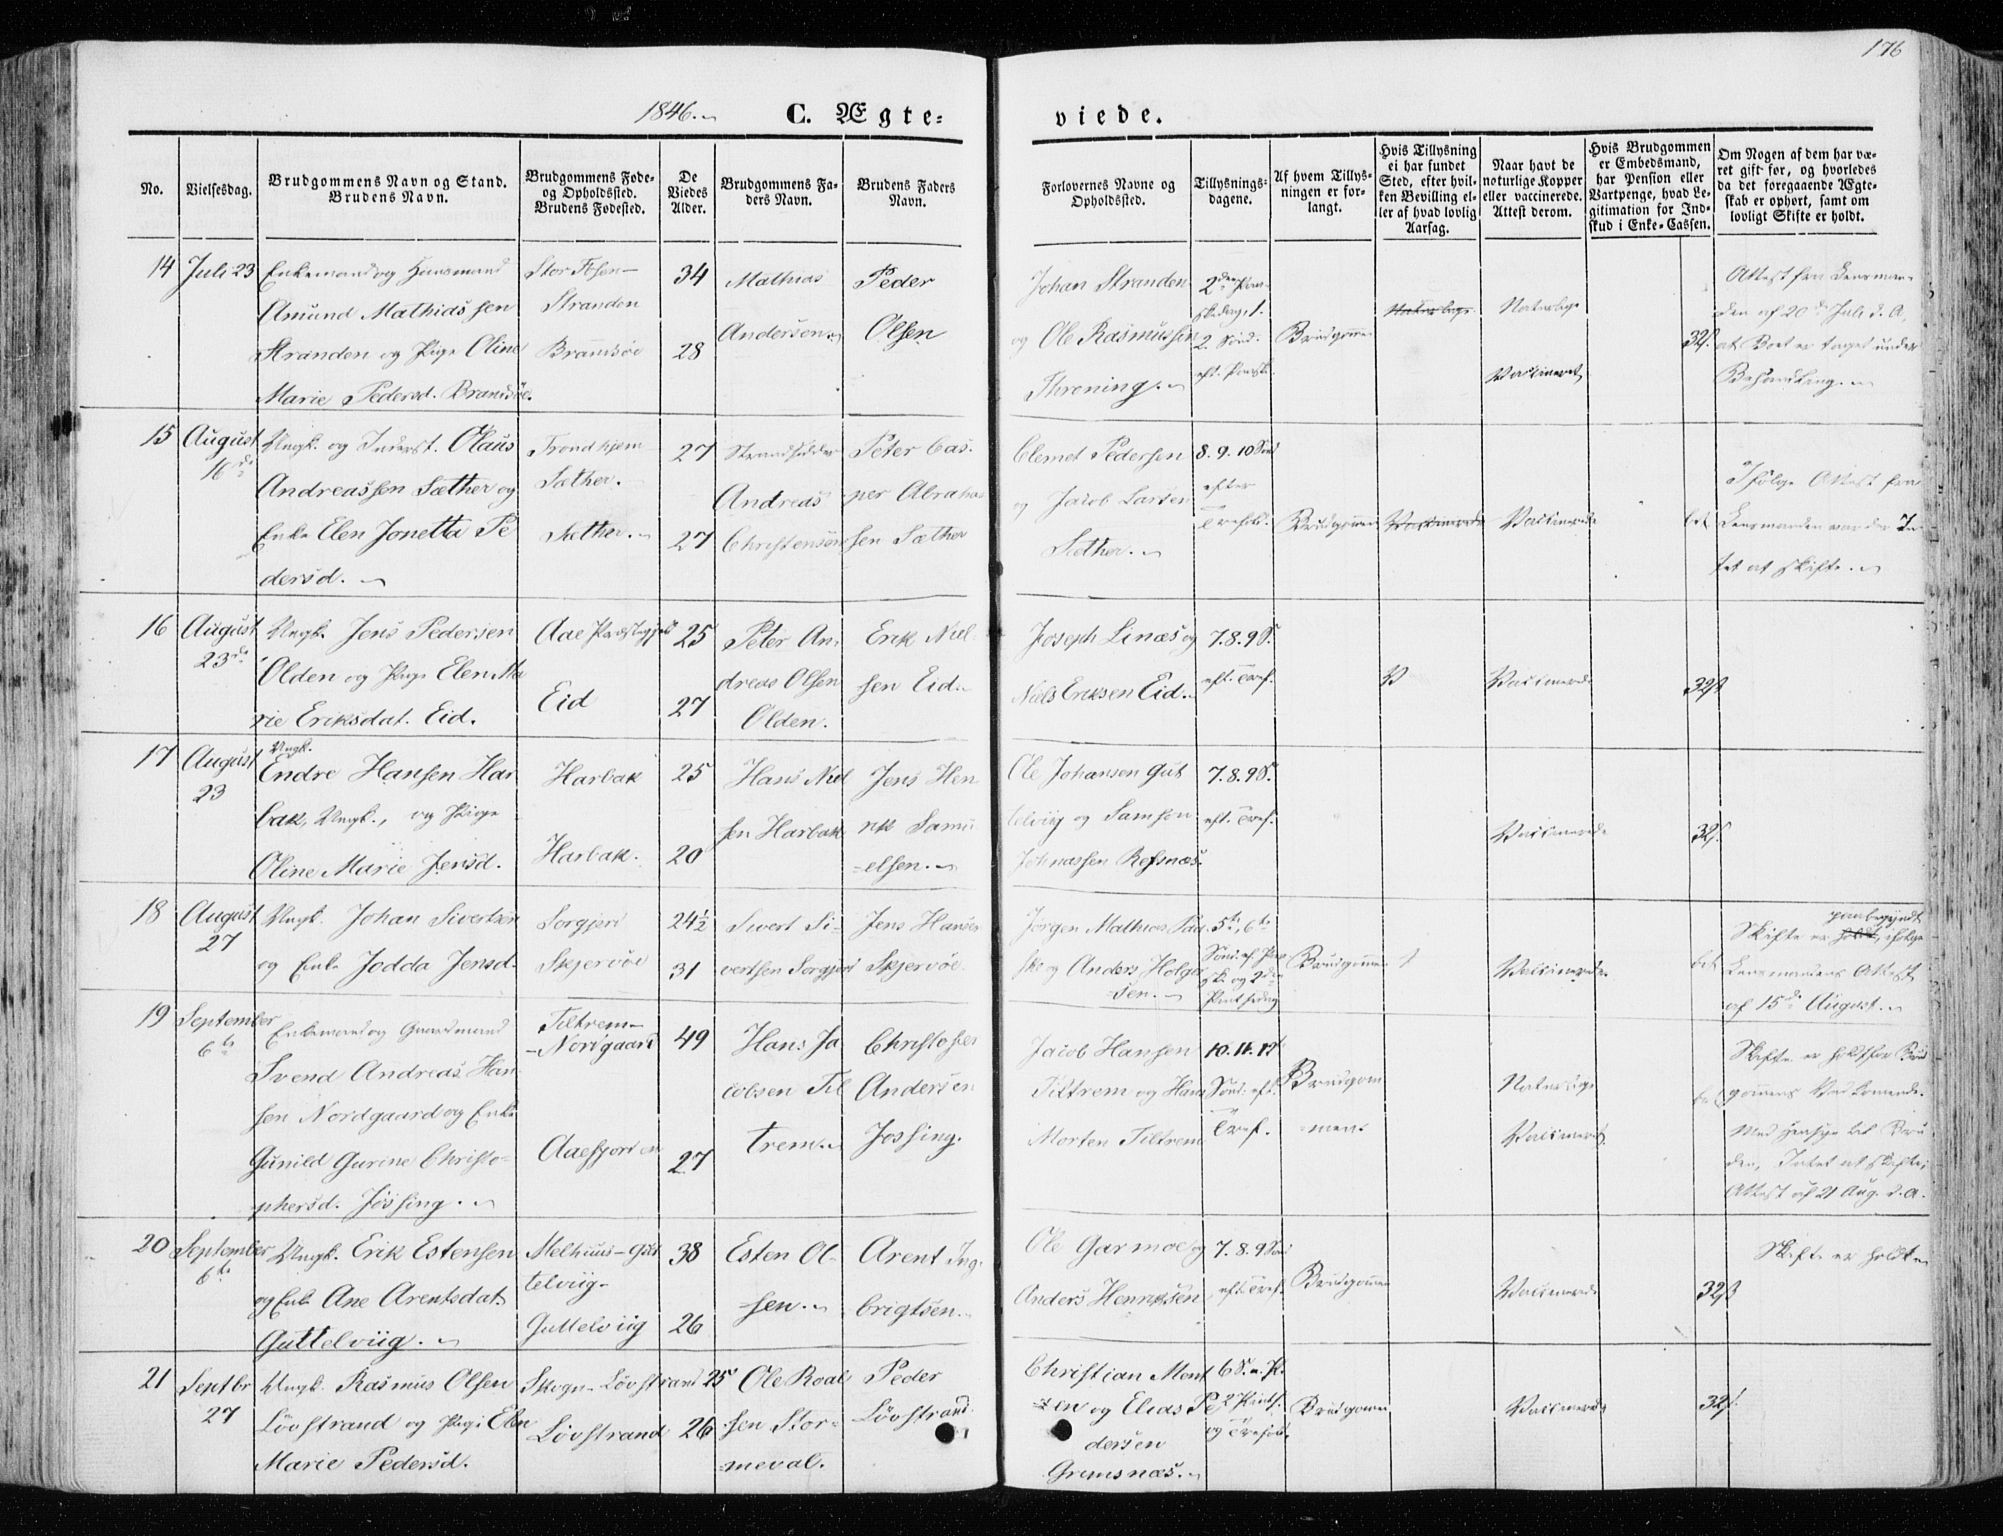 176
1846.
C. Ægte=
viede.
No.
Vielsesdag.
Brudgommens Navn og Stand.
Brudens Navn.
Brudgommens Føde-
og Opholdssted.
Brudens Fødested.
De
Viedes
Alder.
Brudgommens Fa-
ders Navn.
Brudens Faders
Navn.
Forlovernes Navne og
Opholdssted.
Tillysnings-
dagene.
Af hvem Tillys-
ningen er for-
langt.
Hvis Tillysning
ei har fundet
Sted, efter hvil-
ken Bevilling el-
ler af hvad lovlig
Aarsag.
Naar havt de
naturlige Kopper
eller vaccinerede.
Attest derom.
Hvis Brudgommen
er Embedsmand,
har Pension eller
Vartpenge, hvad Le-
gitimation for Ind-
skud i Enke-Cassen.
Om Nogen af dem har væ-
ret gift før, og hvorledes
da det foregaaende Ægte-
skab er ophørt, samt om
lovligt Skifte er holdt.
14
Juli 23
Enkemand og Huusmand
Amund Mathiassen
Stranden og Pige Oline
Marie Pedersd. Brandsøe.
Stor Fosen-
Stranden
Brandsøe
34
28
Mathias
Andersen
Peder
Olsen
Johan Stranden
og Ole Rasmussen
2den Paa-
skedag, 1.
2. Sønd.
eft. Paask.
Brudgommen
Naturlige
Naturlige
Vaccineret
32ß
Attest fra Lensman-
den af 20de Juli d. A,
at Boet er taget under
Behandling.
15
August
16de
Ungk. og Inderst. Olaus
Andreassen Sæther og
Enke Elen Jonetta Pe
dersd.
Trondhjem
Sæther.
Sæther.
27
27
Strandsidder
Andreas
Christensøn
Peter Cas-
per Abraha
sen Sæther
Clemet Pedersen
og Jacob Larsen
Sæther.
8. 9. 10 Sønd
efter
Trefold.
Brudgommen
Vaccinerede
Vaccinerede
bet.
Ifølge Attest fra
Lensmanden var der In-
tet at skifte.
16
August
23de
Ungk. Jens Pedersen
Olden og Pige Elen Ma
rie Eriksdat. Eid.
Aae Præstegjeld
Eid
25
27
Peter An-
dreas Olsen
Olden.
Erik Niel-
sen Eid.
Joseph Linæs og
Niels Eriksen Eid.
7. 8. 9 S.
eft. Tref.
Vaccinerede
32ß
17
August
23
Ungk.
Endre Hansen Har
bak, Ungk., og Pige
Oline Marie Jensd.
Harbak
Harbak.
25
20
Hans Niel
sen Harbak
Jens Hen
rik Samu
=elsen.
Ole Johansen Gut
telviig og Samson
Johnassen Refsnæs.
7. 8. 9 S.
eft. Tref.
Vaccinerede
32ß
18
August
27
Ungk. Johan Sivertsen
og Enke Jodda Jensd.
Sorgjerd
Skjervøe
24½
31
Sivert Si-
vertsen Sorgjerd
Jens Hansen
Skjervøe
Jørgen Mathias Paa
ske og Anders Holge
=sen.
5te, 6te
Sønd. ef. Paa
ske og 2den
Pintsedag
Brudgommen
Vaccinerede
bet.
Skifte er paabegyndt
holdt, ifølge
Lensmandens Attest
af 15de August.
19
September
6te
Enkemand og Gaardmand
Svend Andreas Han
sen Nordgaard og Enke
Gunild Gurine Christo-
phersd. Jøssing.
Tiltrem-
-Nordgaard
Aaefjorden
49
27
Hans Ja
cobsen Til
trem.
Christopher
Andersen
Jøssing.
Jacob Hansen
Tiltrem og Hans
Morten Tiltrem
10. 11. 12
Sønd. eft.
Tref.
Brudgom
=men.
Naturlige
Vaccineret
bet.
Skifte er holdt for Brud
gommens Vedkommende.
Med Hensyn til Bru
den, Intet at skifte;
Attest af 21 Aug. d. A.
20
September
6te
Ungk. Erik Estensen
og Enke Ane Arentsdat.
Guttelviig.
Melhuus-Gut
telviig-
Guttelviig
38
26
Esten Ol-
sen.
Arent Ing-
brigtsen.
Ole Garmoe og
Anders Henriksen
7. 8. 9 Sønd
eft. Tref.
Brudgommen
Vaccinerede
32ß
Skifte er holdt.
21
Septbr
27
Ungk. Rasmus Olsen
Lövstrand og Pige Elen
Marie Pedersd.
Skogn-Lövstrand
Lövstrand
25
26
Ole Roal
sen Stor-
=meval.
Peder
Lövstrand.
Christian Mont
zen og Elias Pe
dersen
Gremsnæs.
6 S. e. P.
2 Pints.
og Trefold.
Brudgommen
Vaccinerede
32ß